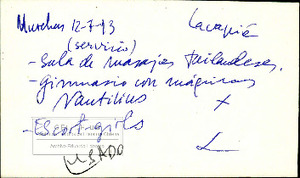 Murchas 12-7-93
Lavapiés
(servicio)
- Sala de masajes tailandeses.
- Gimnasio con máquinas
Nautilius
X
- Escort girls
USADO